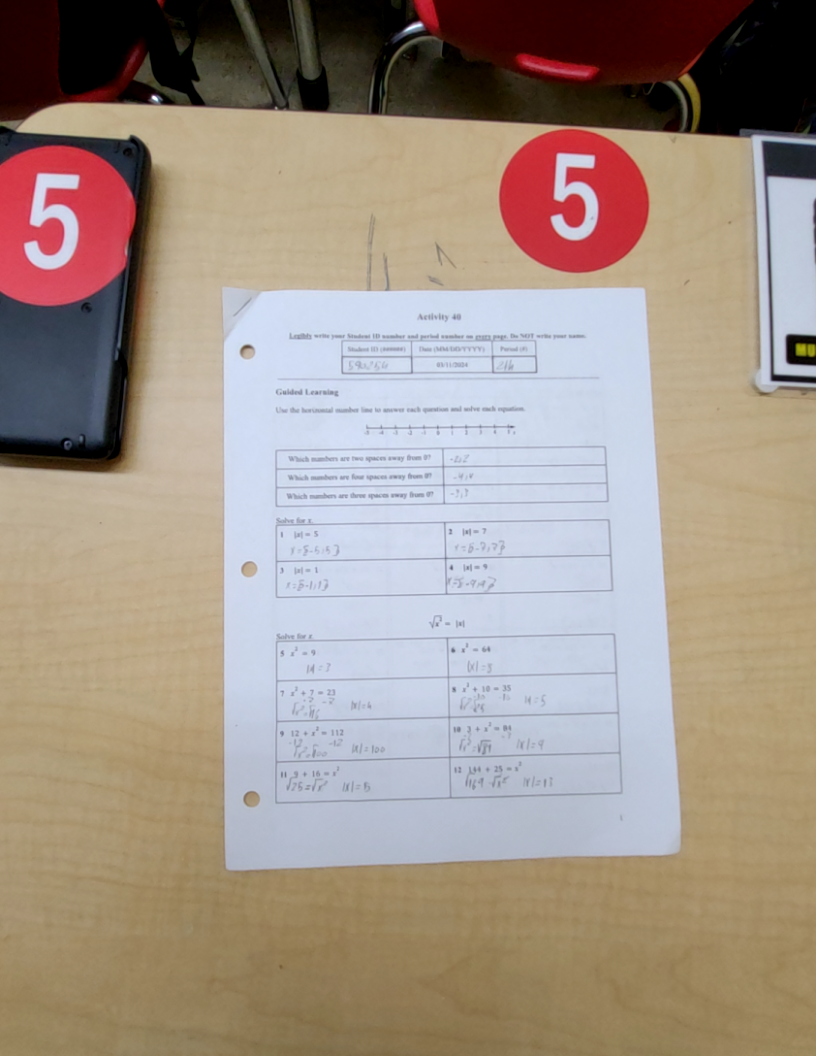 5
5
MU
Activity 40
Legibly write your Student ID number and period number on every page. Do NOT write your name.
Student ID (######) Date (MM/DD/YYYY) Period (#)
03/11/2024
Guided Learning
Use the horizontal number line to answer each question and solve each equation.
-5 -4 -3 -2 -1 0 1 2 3 4 5 x
Which numbers are two spaces away from 0? -2,2
Which numbers are four spaces away from 0? -4,4
Which numbers are three spaces away from 0? -3,3
Solve for x.
1 |x| = 5 2 |x| = 7
x={-5,5} x={-7,7}
3 |x| = 1 4 |x| = 9
x={-1,1} x={-9,9}
√x² = |x|
Solve for x.
5 x² = 9 6 x² = 64
|x|=3 |x|=8
7 x² + 7 = 23 8 x² + 10 = 35
-7 -7 -10 -10
√x²=√16 |x|=4 √x²=√25 |x|=5
9 12 + x² = 112 10 3 + x² = 84
-12 -12 -3 -3
√x²=√100 |x|=100 √x²=√81 |x|=9
11 9 + 16 = x² 12 144 + 25 = x²
√25=√x² |x|=5 √169=√x² |x|=13
1